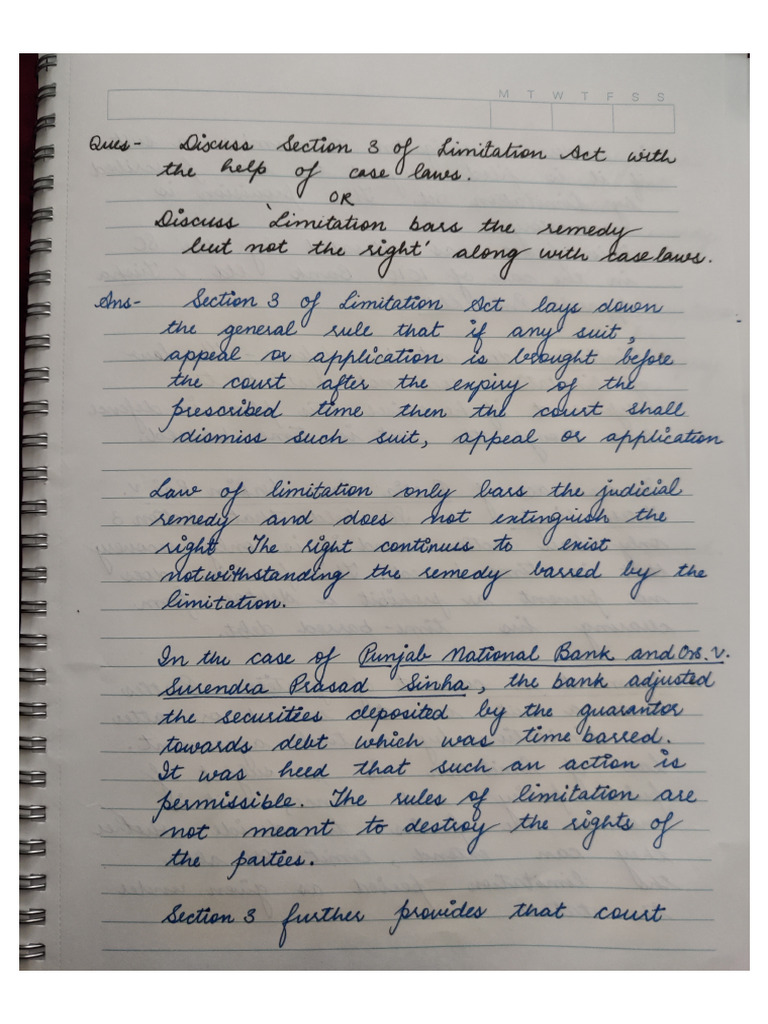 M T W T F S S
Ques- Discuss Section 3 of Limitation Act with
the help of case laws.
OR
Discuss 'Limitation bars the remedy
but not the right' along with case laws.
Ans- Section 3 of Limitation Act lays down
the general rule that if any suit,
appeal or application is brought before
the court after the expiry of the
prescribed time then the court shall
dismiss such suit, appeal or application
Law of limitation only bars the judicial
remedy and does not extinguish the
right. The right continues to exist
notwithstanding the remedy barred by the
limitation.
In the case of Punjab National Bank and Ors. v.
Surendra Prasad Sinha, the bank adjusted
the securities deposited by the guarantor
towards debt which was time barred.
It was heed that such an action is
permissible. The rules of limitation are
not meant to destroy the rights of
the parties.
Section 3 further provides that court